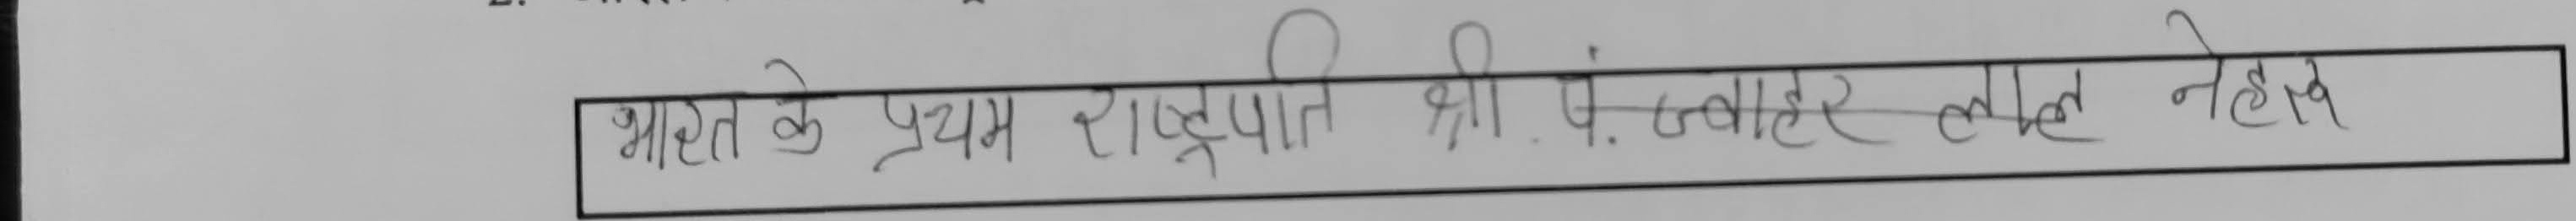 भारत के प्रथम राष्ट्रपति श्री. पं. ज्वाहर लाल नेहरू